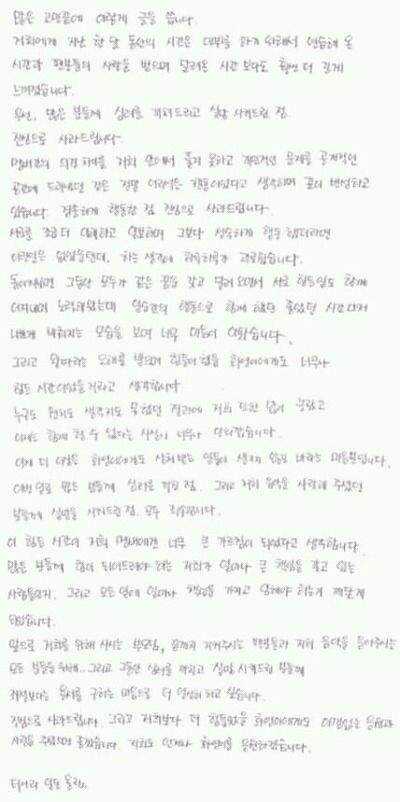 많은 고민끝에 이렇게 글을 씁니다.
저희에게 지난 한 달 동안의 시간은 데뷔를 하기 위해서 연습해 온
시간과 팬분들의 사랑을 받으며 달려온 시간 보다도 훨씬 더 길게
느껴졌습니다.
우선, 많은 분들께 심려를 끼쳐드리고 실망 시켜드린 점
진심으로 사과드립니다.
멤버간의 의견 차이를 저희 안에서 풀지 못하고 개인적인 문제를 공개적인
공간에 드러냈던 것은 정말 어리석은 행동이었다고 생각하며 깊이 반성하고
있습니다. 경솔하게 행동한 점 진심으로 사과드립니다.
서로를 조금 더 이해하고 양보하며 그보다 성숙하게 행동했더라면
이런일은 없었을텐데.. 하는 생각에 하루하루가 괴로웠습니다.
돌이켜보면 그동안 모두가 같은 꿈을 갖고 달려오면서 서로 힘든일도 함께
이겨내며 노력해왔는데 일순간의 행동으로 함께 했던 좋았던 시간마저
나쁘게 비춰지는 모습을 보며 너무 마음이 아팠습니다.
그리고 왕따라는 오해를 받으며 힘들어했을 화영이에게도 너무나
힘든 시간이었을거라고 생각합니다.
누구도 원치도 생각지도 못했던 결과에 저희 또한 많이 놀랐고
이제는 함께 할 수 없다는 사실이 너무나 안타깝습니다.
이제 더 이상은 화영이에게도 상처받는 일들이 생기지 않길 바라는 마음뿐입니다.
이번 일로 많은 분들께 심려를 끼친 점. 그리고 저희 음악을 사랑해 주셨던
분들께 실망을 시켜드린 점. 모두 죄송합니다.
이 힘든 시간이 저희 멤버에겐 너무 큰 가르침이 되었다고 생각합니다.
많은 분들께 힘이 되어드려야 하는 저희가 얼마나 큰 책임을 갖고 있는
사람들인지. 그리고 모든 일에 얼마나 책임을 가지고 임해야 하는지 깨닫게
되었습니다.
앞으로 저희를 위해 사시는 부모님, 끝까지 지켜주시는 팬분들과 저희 음악을 들어주시는
모든 분들을 위해.. 그리고 그동안 심려를 끼치고 실망 시켜드린 분들께
좌절보다는 용서를 구하는 마음으로 더 열심히 하고 싶습니다.
진심으로 사과드립니다. 그리고 저희보다 더 힘들었을 화영이에게도 아낌없는 응원과
사랑을 주셨으면 좋겠습니다. 저희도 언제나 화영이를 응원하겠습니다.
티아라 일동 올림.